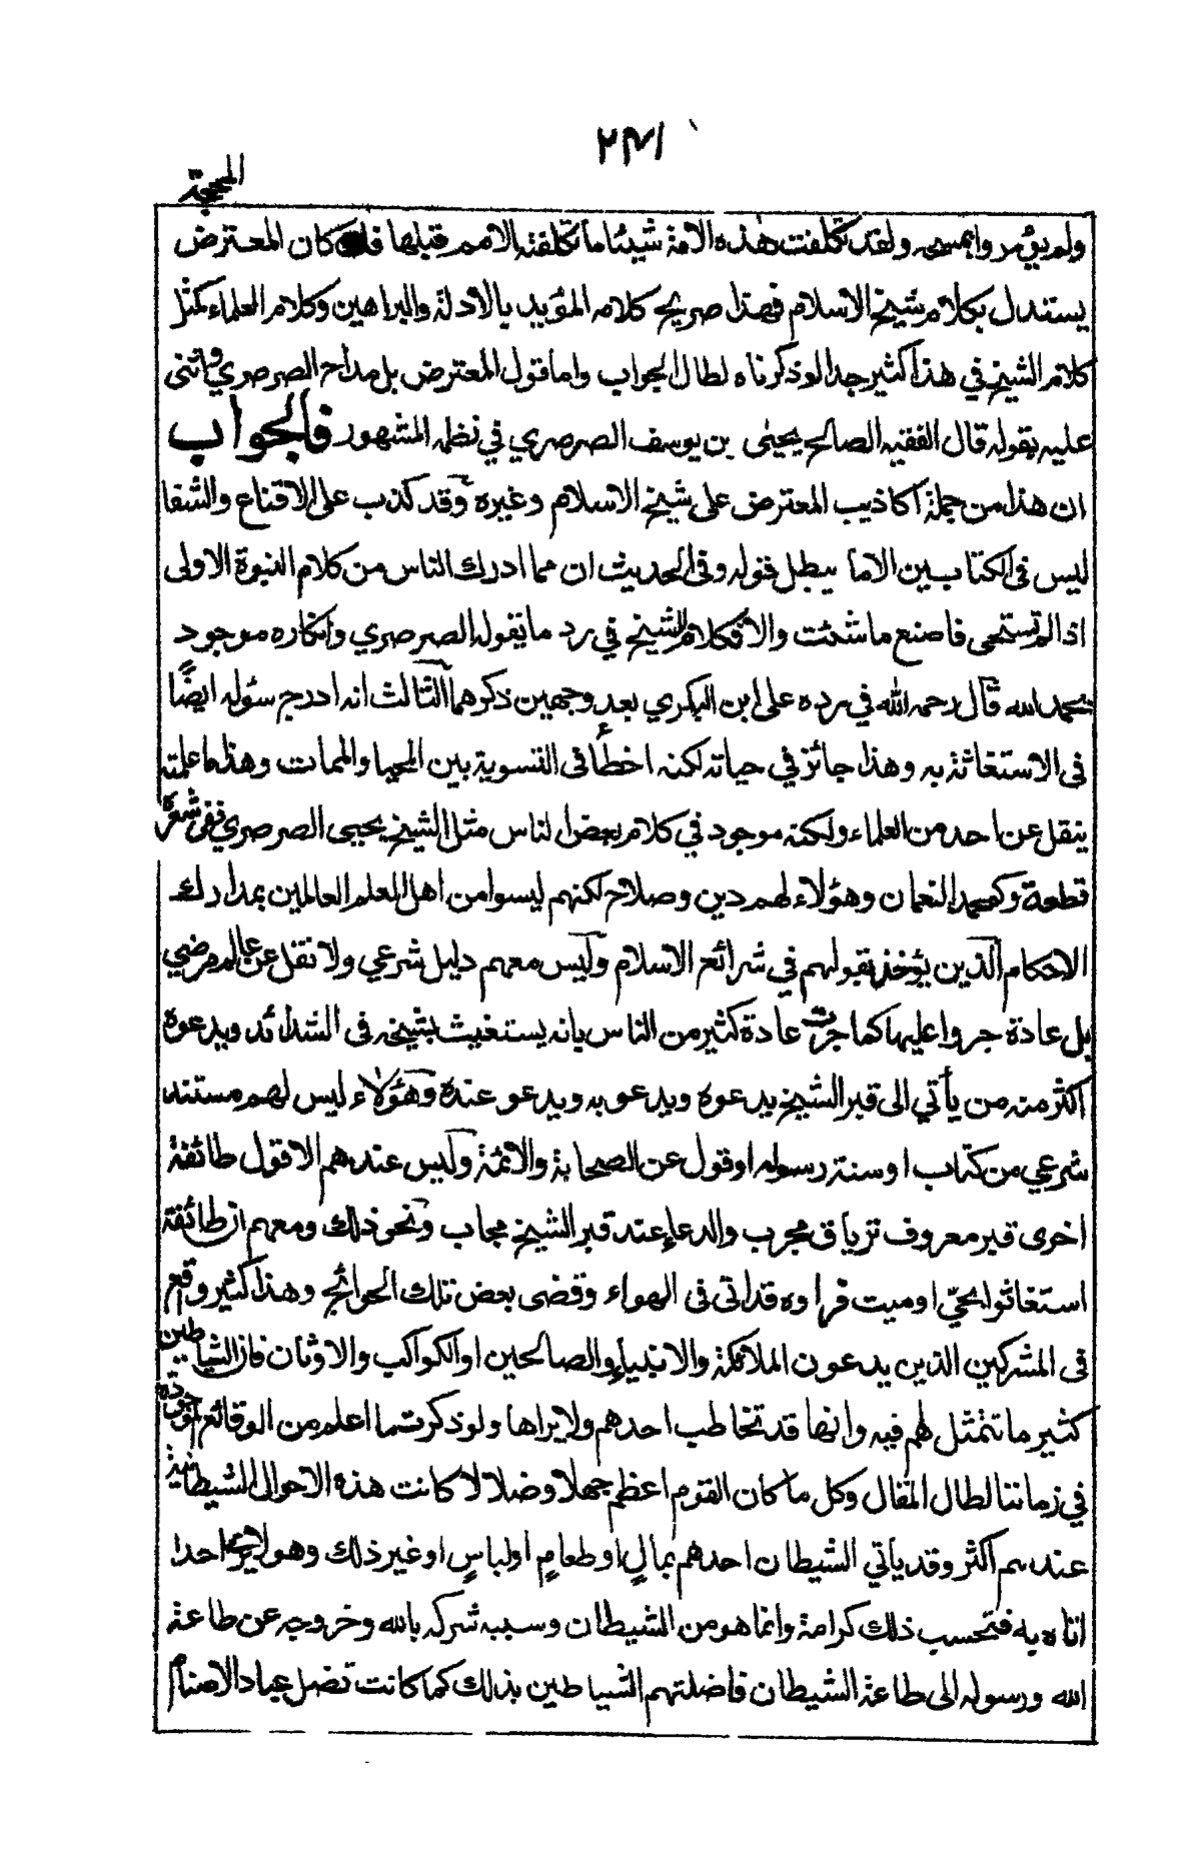 ٢٣١
المحجة
ولم يؤمروا بمسحه ولقد تكلفت هذه الامة شيئا ما تكلفته الامم قبلها فان كان المعترض
يستدل بكلام شيخ الاسلام فهذا صريح كلامه المؤيد بالادلة والبراهين وكلام العلماء كمثل
كلام الشيخ في هذا كثير جدا لو ذكرناه لطال الجواب واما قول المعترض بل مداح الصرصري واثنى
عليه بقوله قال الفقيه الصالح يحيى بن يوسف الصرصري في نظمه المشهور فالجواب
ان هذا من جملة اكاذيب المعترض على شيخ الاسلام وغيره وقد كذب على الاقناع والشفا
ليس في الكتابين الا ما يبطل قوله وفي الحديث ان مما ادرك الناس من كلام النبوة الاولى
اذا لم تستحى فاصنع ما شئت والا فكلام الشيخ في رد ما يقوله الصرصري وانكاره موجود
بحمد الله قال رحمه الله في رده على ابن البكري بعد وجهين ذكرهما الثالث انه ادرج سؤله ايضًا
فى الاستغاثة به وهذا جائز في حياته لكنه اخطأ فى التسوية بين المحيا والممات وهذا ما علمته
ينقل عن احد من العلماء ولكنه موجود في كلام بعض الناس مثل الشيخ يحيى الصرصري ففى شعره
قطعة وكمحمد النعمان وهؤلاء لهم دين وصلاح لكنهم ليسوا من اهل العلم العالمين بمدارك
الاحكام الذين يؤخذ بقولهم في شرائع الاسلام وليس معهم دليل شرعي ولا نقل عن عالم مرضي
بل عادة جروا عليها كما جرت عادة كثير من الناس بانه يستغيث بشيخه فى الشدائد ويدعوه
اكثر منه من يأتي الى قبر الشيخ يدعوه ويدعو به ويدعو عنده وهؤلاء ليس لهم مستند
شرعي من كتاب او سنة رسوله او قول عن الصحابة والائمة وليس عندهم الا قول طائفة
اخرى قبر معروف ترياق مجرب والدعاء عند قبر الشيخ مجاب ونحو ذلك ومعهم ان طائفة
استغاثوا بحيّ او ميت فراوه قد اتى فى الهواء وقضى بعض تلك الحوائج وهذا كثير وقع
فى المشركين الذين يدعون الملائكة والانبياء والصالحين او الكواكب والاوثان فان الشياطين
كثير ما تتمثل لهم فيه وانها قد تخاطب احدهم ولا يراها ولو ذكرت ما اعلم من الوقائع الموجودة
في زماننا لطال المقال وكل ما كان القوم اعظم جهلا وضلالا كانت هذه الاحوال الشيطانية
عندهم اكثر وقد يأتي الشيطان احدهم بمالٍ او طعامٍ او لباسٍ او غير ذلك وهو لا يرى احدا
اتاه به فتحسب ذلك كرامة وانما هو من الشيطان وسببه شركه بالله وخروجه عن طاعة
الله ورسوله الى طاعة الشيطان فاضلتهم الشياطين بذلك كما كانت تضل عباد الاصنام